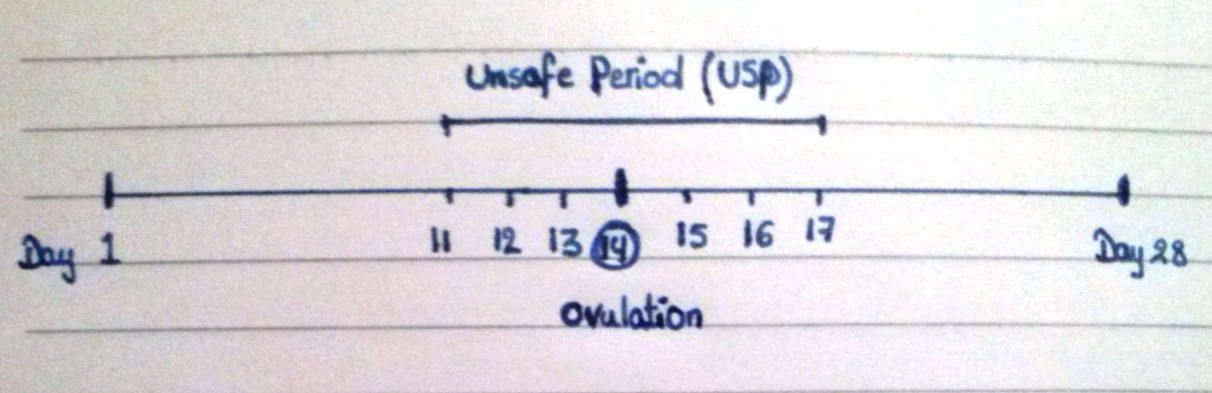 Unsafe Period (USP)
Day 1 11 12 13 14 15 16 17 Day 28
ovulation